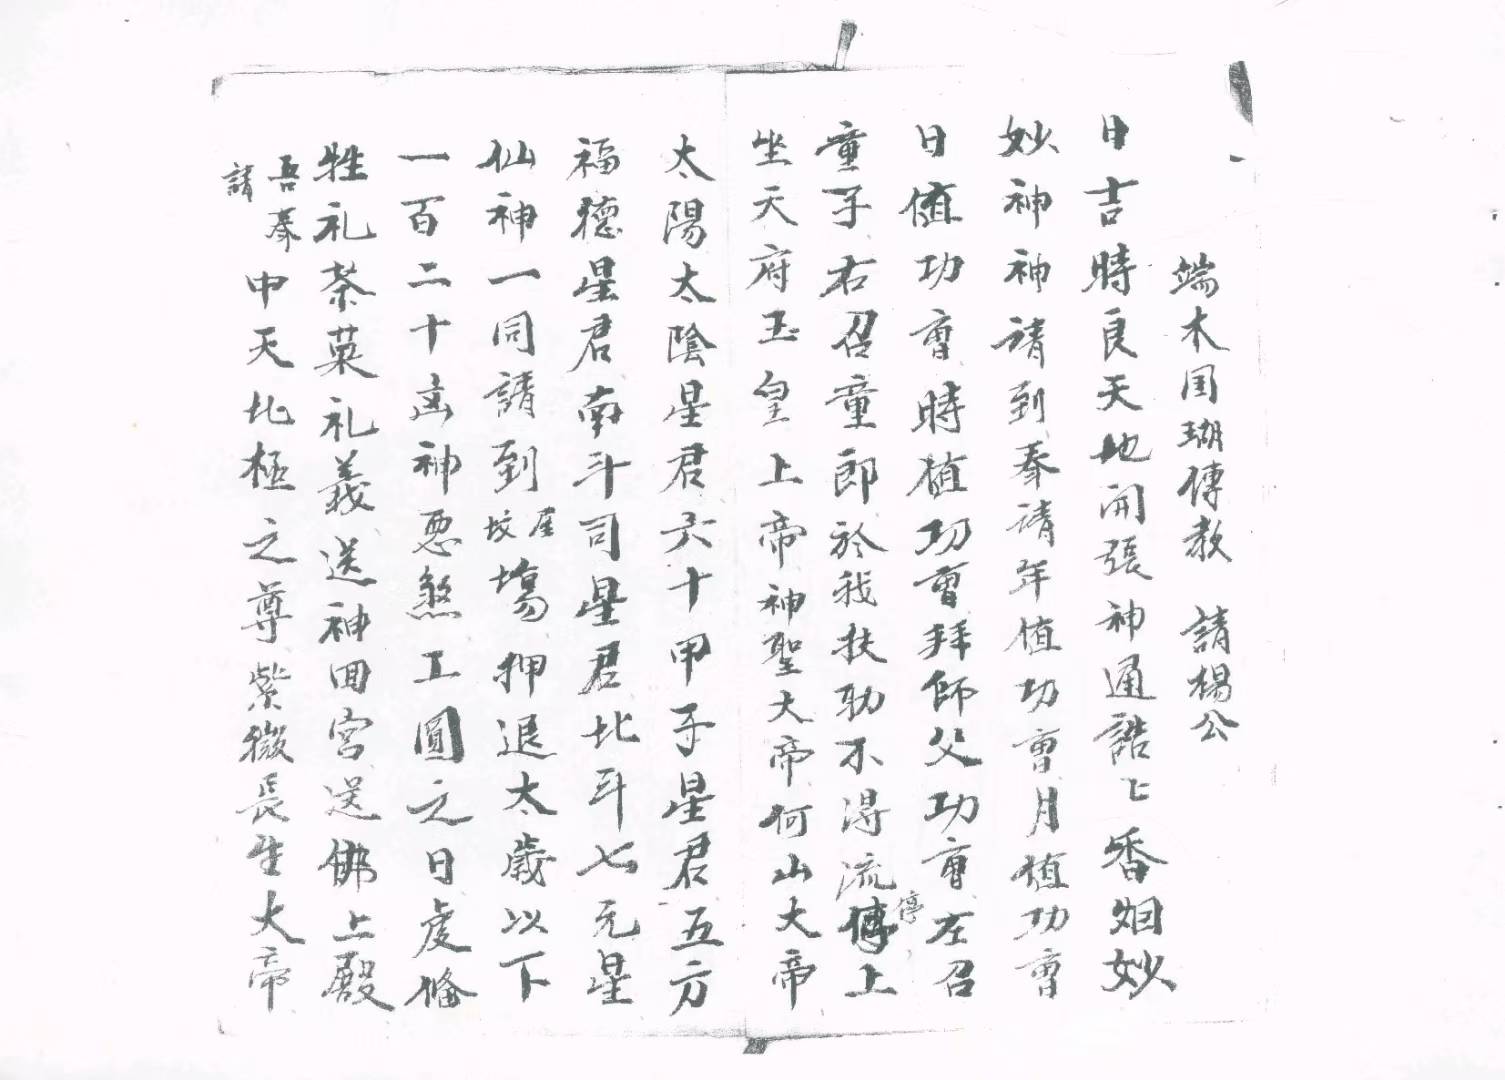 端木国瑚傳教 請楊公
日吉時良天地开張神通誥上香烟妙
妙神神请到奉请年值功曹月值功曹
日值功曹時值功曹拜師父功曹左召
童子右召童郎於我扶助不得流傳停上
坐天府玉皇上帝神聖大帝何山大帝
太陽太陰星君六十甲子星君五方
福德星君南斗司星君北斗七元星
仙神一同請到坟屋塲押退太歲以下
一百二十凶神惡煞工圓之日虔俻
牲礼茶菓礼義送神回宫送佛上殿
吾奉請中天北極之尊紫微長生大帝